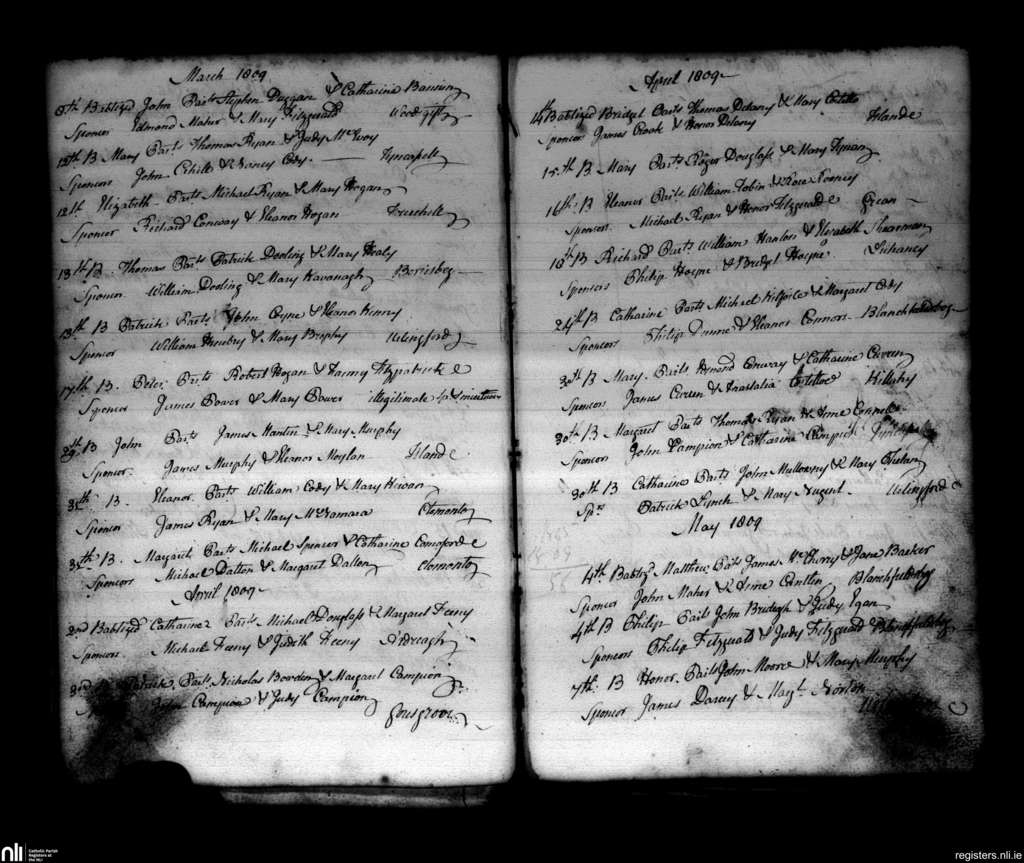 March 1809
8th Babtized John Parts Stephen Duggan & Catharine Banning
Sponcor Edmond Maher & Mary Fitzgerald
12th B Mary Parts Thomas Ryan & Judy McEvoy
Sponcors John Cahill & Nancy Cody.
12th Elizabeth Parts Michael Ryan & Mary Hogan
Sponcor Richard Conway & Eleanor Hogan
13th B. Thomas Parts Patrick Dooling & Mary Healy
Sponcor William Dooling & Mary Kavanagh
13th B Patrick Parts John Coyne & Eleanor Kenny
Sponcor William & Mary Brophy Urlingford
17th B. Peter Parts Robert Hogan & Fanny Fitzpatrick
Sponcor James Bower & Mary Bower illegitimate
29th B John Parts James Mantin & Mary Murphy
Sponcor. James Murphy & Eleanor Moylan Island
B. Eleanor Parts William Cody & Mary
Sponcor James Ryan & Mary McNamara Clomonty
B. Margarit Parts Michael Spencer & Catharine Comeforde
Sponcors Michael Dalton & Margaret Dalton Clomonty
April 1809
2nd Babtized Catharine Parts Michael Douglass & Margaret Feeny
Sponcors. Michael Feeny & Judith Feeny
3rd Patrick. Parts Nicholas Bowden & Margaret Campion
John Campion & Judy Campion
April 1809
14th Babtized Bridget Parts Thomas Delany & Mary
Sponcor James Cook & Honor Delany Island
15th B Mary Parts Roger Douglass & Mary
16th B Eleanor Parts William Tobin & Rose Rooney
Sponcors. Michael Ryan & Honor Fitzgerald
B Richard Parts William Hanlon & Elizabeth Shearman
Sponcors Philip Hoyne & Bridget Hoyne
24th B Catharine Parts Michael Kilfoile & Margaret Cody
Sponcors Philip Dunne & Eleanor Connors
30th B Mary. Parts Conway & Catharine Curren
Sponcors James Curren & Anastatia
30th B Margaret Parts Thomas Ryan & Anne Connell
Sponcors John Campion & Catharine Campion
30th B Catharine Parts John Mullowny & Mary Phelan
Sprs Patrick Lynch & Mary Nugent. Urlingford
May 1809
4th Babtz. Matthew Parts James & Jane Barker
Sponcor John Maher & Anne Cantlin
4th B Philip Parts John & Judy Egan
Sponcors Philip Fitzgerald & Judy Fitzgerald
7th B Honor. Parts John Moore & Mary Murphy
Sponcor James Darcy & Margt. Norton
nli
Catholic Parish
Registers at
the NLI
registers.nli.ie